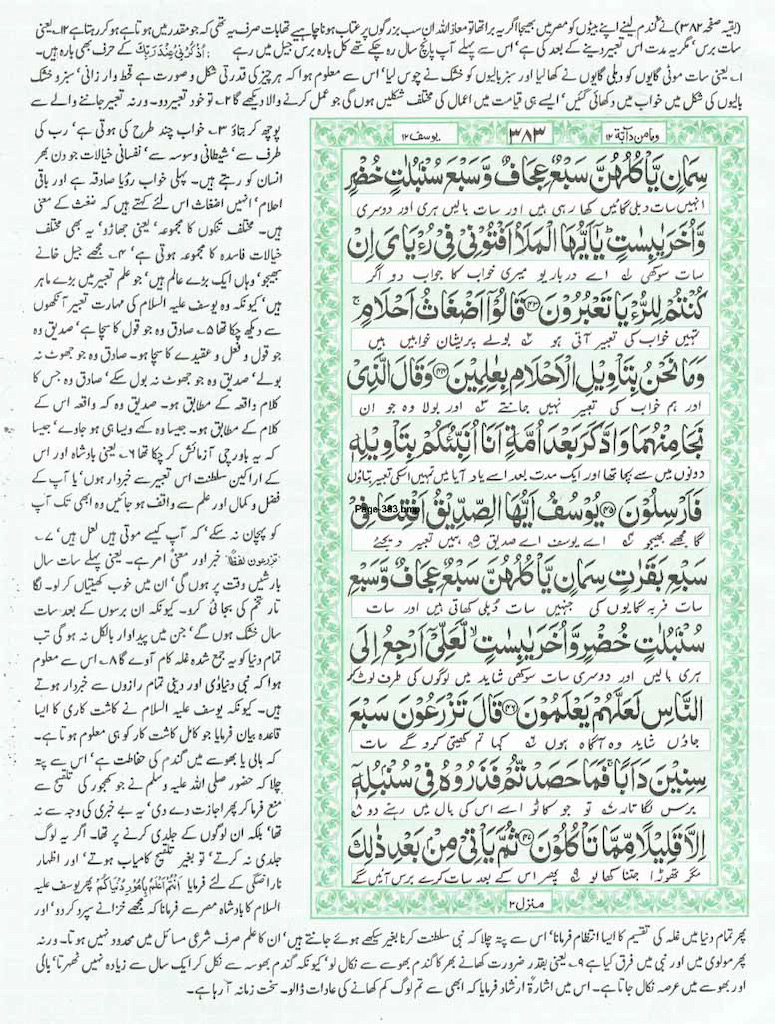 (بقیہ صفحہ ۳۸۲) نے گندم لینے اپنے بیٹوں کو مصر میں بھیجا اگر یہ برا تھا تو معاذ اللہ ان سب بزرگوں پر عتاب ہونا چاہیے تھا بات صرف یہ تھی کہ جو مقدر میں ہوتا ہے ہو کر رہتا ہے ۱۲۔ یعنی
سات برس، مگر یہ مدت اس تعبیر دینے کے بعد کی ہے، اس سے پہلے آپ پانچ سال رہ چکے تھے کل بارہ برس جیل میں رہے اُذْكُرْنِي عِنْدَ رَبِّكَ کے حرف بھی بارہ ہیں۔
۱۔ یعنی سات موٹی گایوں کو دبلی گایوں نے کھا لیا اور سبز بالیوں کو خشک نے چوس لیا، اس سے معلوم ہوا کہ ہر چیز کی قدرتی شکل و صورت ہے قحط و ار زانی، سبز و خشک
بالیوں کی شکل میں خواب میں دکھائی گئیں، ایسے ہی قیامت میں اعمال کی مختلف شکلیں ہوں گی جو عمل کرنے والا دیکھے گا ۲۔ تو خود تعبیر دو۔ ورنہ تعبیر جاننے والے سے
پوچھ کر بتاؤ ۳۔ خواب چند طرح کی ہوتی ہے، رب کی
طرف سے، شیطانی وسوسہ سے، نفسانی خیالات جو دن بھر
انسان کو رہتے ہیں۔ پہلی خواب رؤیا صادقہ ہے اور باقی
احلام، انہیں اضغاث اس لئے کہتے ہیں کہ ضغث کے معنی
ہیں۔ مختلف تنکوں کا مجموعہ، یعنی جھاڑو، یہ بھی مختلف
خیالات فاسدہ کا مجموعہ ہوتی ہے، ۴۔ مجھے جیل خانے
بھیجو، وہاں ایک بڑے عالم ہیں، جو علم تعبیر میں بڑے ماہر
ہیں، کیونکہ وہ یوسف علیہ السلام کی مہارت تعبیر آنکھوں
سے دیکھ چکا تھا ۵۔ صادق وہ جو قول کا سچا ہے، صدیق وہ
جو قول و فعل و عقیدے کا سچا ہو۔ صادق وہ جو جھوٹ نہ
بولے، صدیق وہ جو جھوٹ نہ بول سکے، صادق وہ جس کا
کلام واقعہ کے مطابق ہو۔ صدیق وہ کہ واقعہ اس کے
کلام کے مطابق ہو۔ جیسا وہ کہے ویسا ہی ہو جاوے، جیسا
کہ یہ باورچی آزمائش کر چکا تھا ۶۔ یعنی بادشاہ اور اس
کے اراکین سلطنت اس تعبیر سے خبردار ہوں، یا آپ کے
فضل و کمال اور علم سے واقف ہو جائیں وہ ابھی تک آپ
کو پہچان نہ سکے، کہ آپ کیسے موتی ہیں لعل ہیں، ۷۔
تزرعون لفظًا خبر اور معنی امر ہے۔ یعنی پہلے سات سال
بارشیں وقت پر ہوں گی، ان میں خوب کھیتیاں کر لو۔ لگا
تار تخم کی بجائی کرو۔ کیونکہ ان برسوں کے بعد سات
سال خشک ہوں گے، جن میں پیداوار بالکل نہ ہو گی تب
تمام دنیا کو یہ جمع شدہ غلہ کام آوے گا ۸۔ اس سے معلوم
ہوا کہ نبی دنیاوی اور دینی تمام رازوں سے خبردار ہوتے
ہیں۔ کیونکہ یوسف علیہ السلام نے کاشت کاری کا ایسا
قاعدہ بیان فرمایا جو کامل کاشت کار کو ہی معلوم ہوتا ہے۔
کہ بالی یا بھوسے میں گندم کی حفاظت ہے، اس سے پتہ
چلا کہ حضور صلی اللہ علیہ وسلم نے جو کھجور کی تلقیح سے
منع فرما کر پھر اجازت دے دی، یہ بے خبری کی وجہ سے نہ
تھا، بلکہ ان لوگوں کے جلدی کرنے پر تھا۔ اگر یہ لوگ
جلدی نہ کرتے، تو بغیر تلقیح کامیاب ہوتے، اور اظہار
ناراضگی کے لئے فرمایا اَنْتُمْ اَعْلَمُ بِاُمُوْرِ دُنْيَاكُمْ پھر یوسف علیہ
السلام کا بادشاہ مصر سے فرمانا کہ مجھے خزانے سپرد کر دو، اور
وما من دآبة ۱۲
۳۸۳
یوسف ۱۲
سِمَانٍ يَّاْكُلُهُنَّ سَبْعٌ عِجَافٌ وَّسَبْعَ سُنْبُلٰتٍ خُضْرٍ
انہیں سات دبلی گائیں کھا رہی ہیں اور سات بالیں ہری اور دوسری
وَّاُخَرَ يٰبِسٰتٍ يٰٓاَيُّهَا الْمَلَاُ اَفْتُوْنِيْ فِيْ رُءْيَايَ اِنْ
سات سوکھی ۱ اے درباریو میری خواب کا جواب دو اگر
كُنْتُمْ لِلرُّءْيَا تَعْبُرُوْنَ ﴿۴۳﴾ قَالُوْٓا اَضْغَاثُ اَحْلَامٍ
تمہیں خواب کی تعبیر آتی ہو ۲ بولے پریشان خوابیں ہیں
وَمَا نَحْنُ بِتَاْوِيْلِ الْاَحْلَامِ بِعٰلِمِيْنَ ﴿۴۴﴾ وَقَالَ الَّذِيْ
اور ہم خواب کی تعبیر نہیں جانتے ۳ اور بولا وہ جو ان
نَجَا مِنْهُمَا وَادَّكَرَ بَعْدَ اُمَّةٍ اَنَا اُنَبِّئُكُمْ بِتَاْوِيْلِهٖ
دونوں میں سے بچا تھا اور ایک مدت بعد اسے یاد آیا میں تمہیں اسکی تعبیر بتاؤں
فَاَرْسِلُوْنِ ﴿۴۵﴾ يُوْسُفُ اَيُّهَا الصِّدِّيْقُ اَفْتِنَا فِيْ
Page-383.bmp
گا مجھے بھیجو ۴ اے یوسف اے صدیق ۵ ہمیں تعبیر دیجئے
سَبْعِ بَقَرٰتٍ سِمَانٍ يَّاْكُلُهُنَّ سَبْعٌ عِجَافٌ وَّسَبْعِ
سات فربہ گایوں کی جنہیں سات دُبلی کھاتی ہیں اور سات
سُنْبُلٰتٍ خُضْرٍ وَّاُخَرَ يٰبِسٰتٍ لَّعَلِّيْٓ اَرْجِعُ اِلَى
ہری بالیں اور دوسری سات سوکھی شاید میں لوگوں کی طرف لوٹ کر
النَّاسِ لَعَلَّهُمْ يَعْلَمُوْنَ ﴿۴۶﴾ قَالَ تَزْرَعُوْنَ سَبْعَ
جاؤں شاید وہ آگاہ ہوں ۶ کہا تم کھیتی کرو گے سات
سِنِيْنَ دَاَبًا فَمَا حَصَدْتُّمْ فَذَرُوْهُ فِيْ سُنْبُلِهٖٓ
برس لگاتار ۷ تو جو کاٹو اسے اس کی بال میں رہنے دو ۸
اِلَّا قَلِيْلًا مِّمَّا تَاْكُلُوْنَ ﴿۴۷﴾ ثُمَّ يَاْتِيْ مِنْ بَعْدِ ذٰلِكَ
مگر تھوڑا جتنا کھا لو ۹ پھر اس کے بعد سات کرے برس آئیں گے
منزل ۳
پھر تمام دنیا میں غلہ کی تقسیم کا ایسا انتظام فرمانا، اس سے پتہ چلا کہ نبی سلطنت کرنا بغیر سیکھے ہوئے جانتے ہیں، ان کا علم صرف شرعی مسائل میں محدود نہیں ہوتا۔ ورنہ
پھر مولوی میں اور نبی میں فرق کیا ہے ۹۔ یعنی بقدر ضرورت کھانے بھر کا گندم بھوسے سے نکال لو، کیونکہ گندم بھوسہ سے نکل کر ایک سال سے زیادہ نہیں ٹھہرتا، بالی
اور بھوسے میں عرصہ نکال جاتا ہے۔ اس میں اشارۃً ارشاد فرمایا کہ ابھی سے تم لوگ کم کھانے کی عادات ڈالو۔ سخت زمانہ آ رہا ہے۔